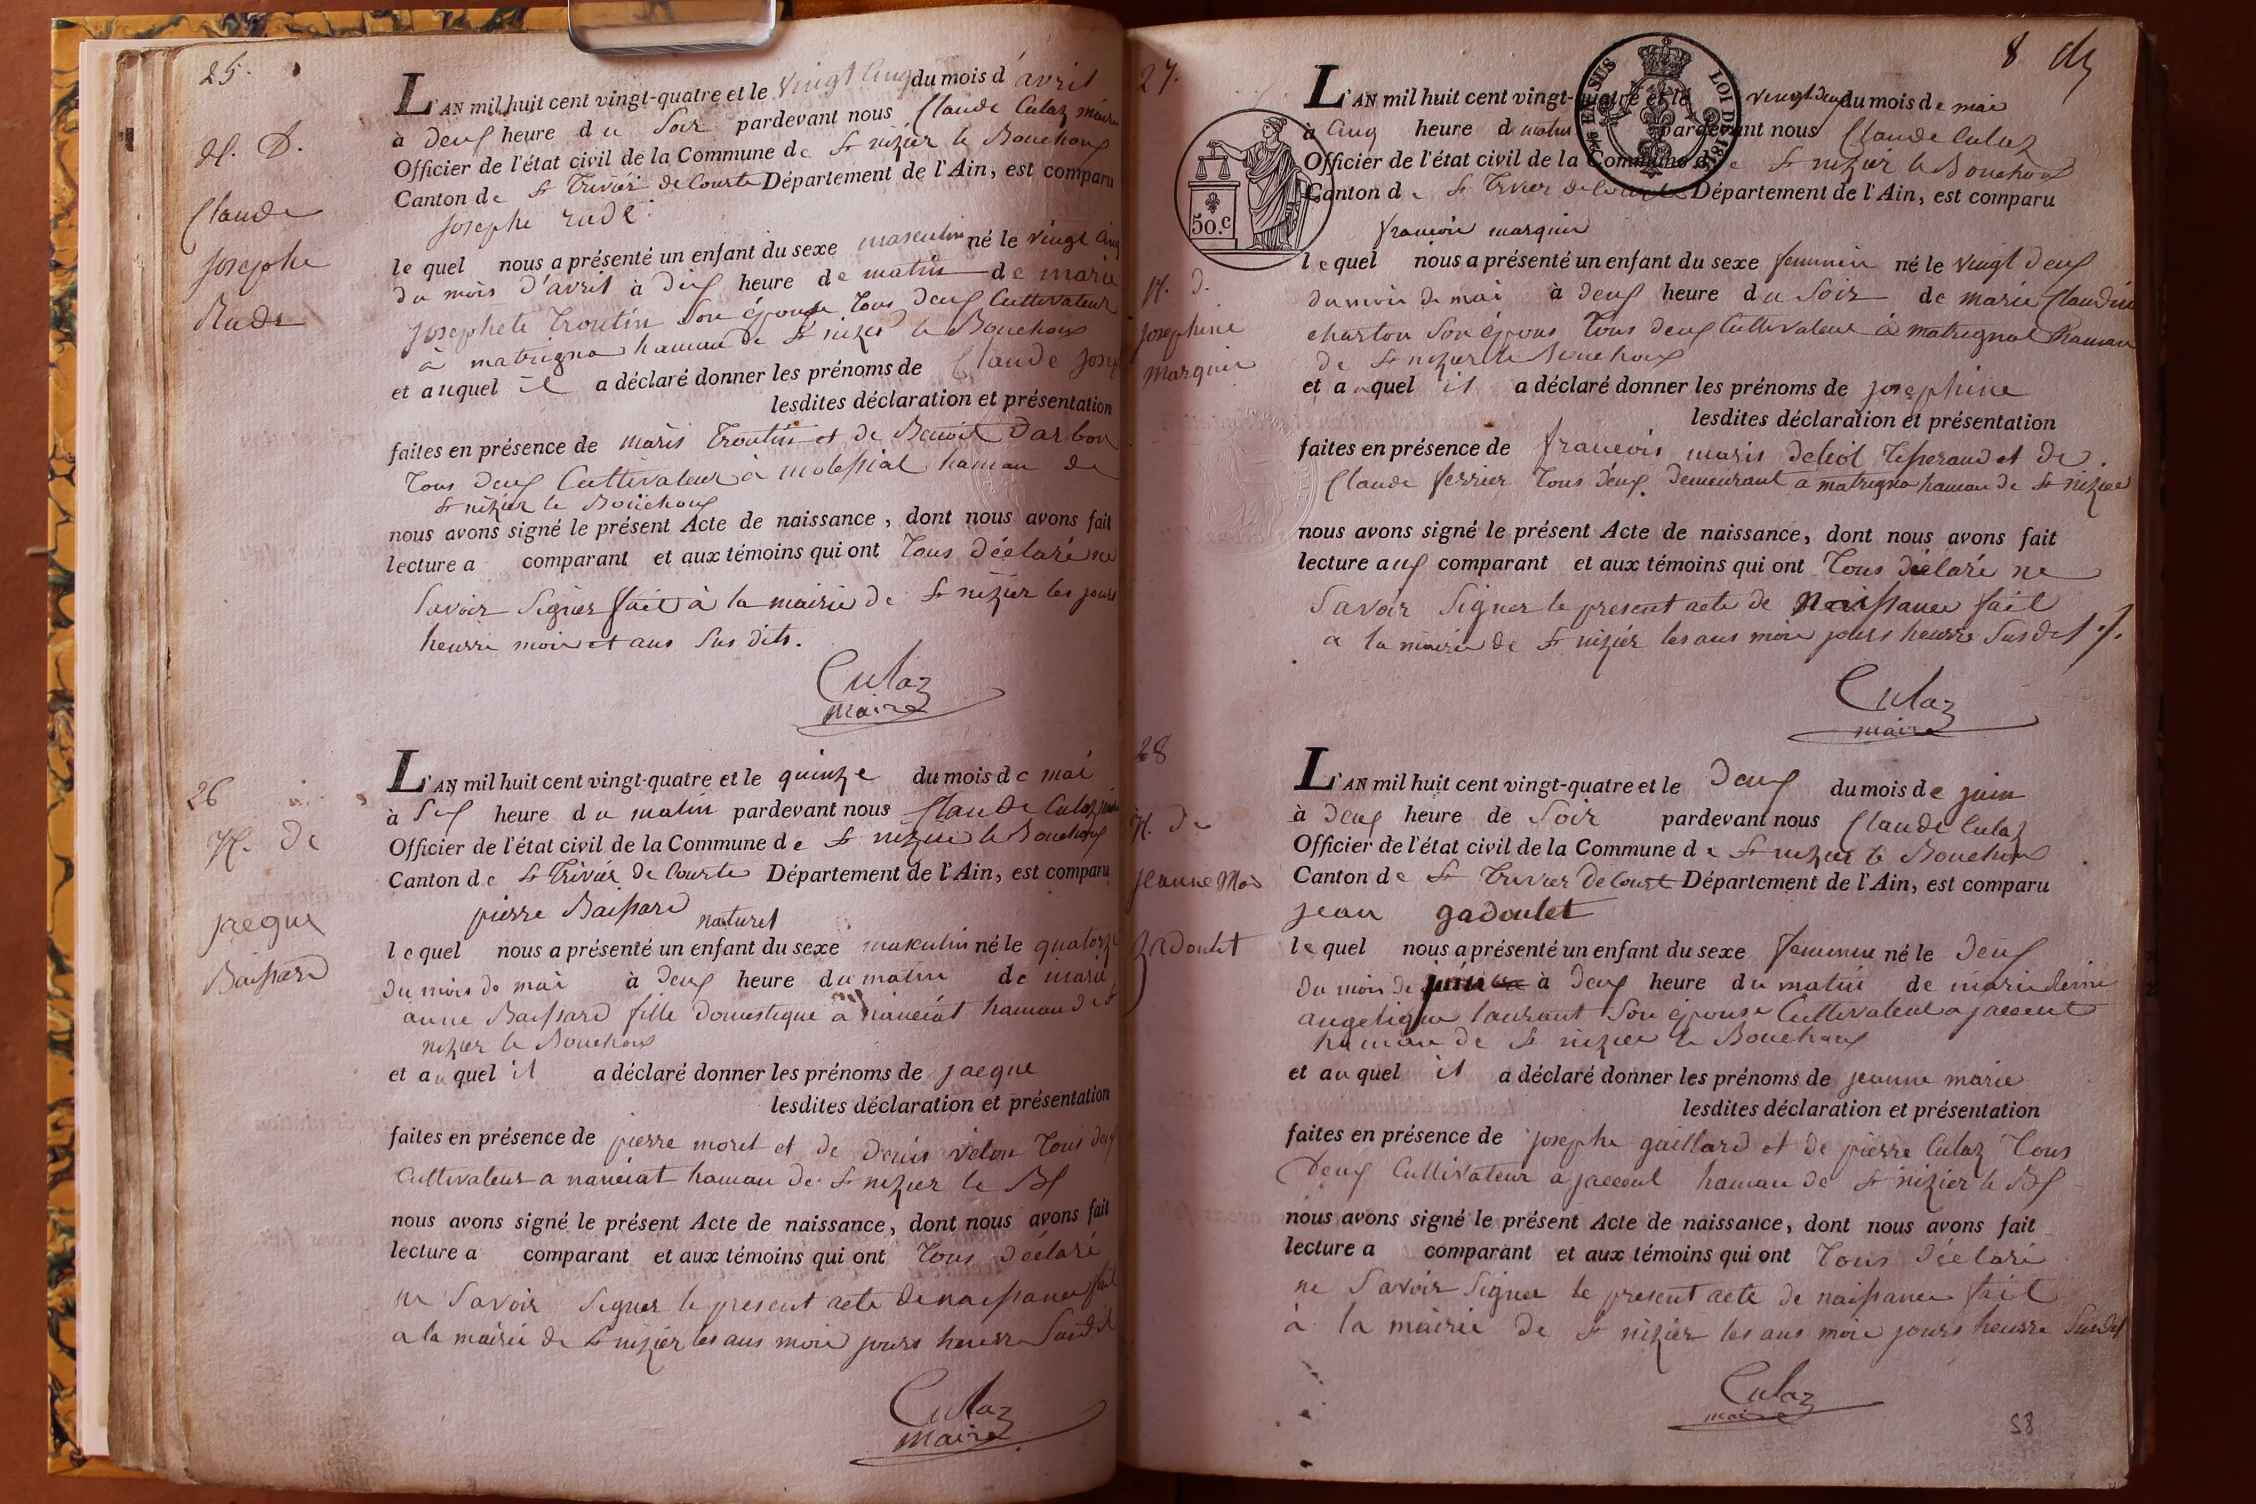 25.
N. D.
Claude
Josephe
Rude
L'AN mil huit cent vingt-quatre et le vingt cinq du mois d'avril
à deux heure du Soir pardevant nous Claude Culaz maire
Officier de l'état civil de la Commune de St nizier le Bouchoux
Canton de St Trivier de Courte Département de l'Ain, est comparu
Josephe rude
le quel nous a présenté un enfant du sexe masculin né le vingt cinq
du mois d'avril à dix heure de matin de marie
Josephete Troutin Son épouse Tous deux Cultivateur
à matrigna hamau de St nizier le Bouchoux
et auquel il a déclaré donner les prénoms de Claude Josep
lesdites déclaration et présentation
faites en présence de maris Troutin et de Benoit Darbon
Tous deux Cultivateur à molessiat hamau de
St nizier le Bouchoux
nous avons signé le présent Acte de naissance, dont nous avons fait
lecture a comparant et aux témoins qui ont Tous déclaré ne
Savoir Signer fait à la mairie de St nizier les jours
heurre mois et ans Sus dits.
Culaz
maire
26
N. de
jacque
Baissard
L'AN mil huit cent vingt-quatre et le quinze du mois de mai
à Six heure du matin pardevant nous Claude Culaz
Officier de l'état civil de la Commune de St nizier le Bouchoux
Canton de St Trivier de Courte Département de l'Ain, est comparu
pierre Baissard
naturel
le quel nous a présenté un enfant du sexe masculin né le quatorze
du mois de mai à deux heure du matin de marie
anne Baissard fille domestique a nanciat hamau de St
nizier le Bouchoux
et au quel il a déclaré donner les prénoms de jacque
lesdites déclaration et présentation
faites en présence de pierre morel et de denis velon Tous deux
Cultivateur a nanciat hamau de St nizier le Bx
nous avons signé le présent Acte de naissance, dont nous avons fait
lecture a comparant et aux témoins qui ont Tous déclaré
ne Savoir Signer le present acte de naissance fait
a la mairie de St nizier les ans mois jours heurre Susdit
Culaz
maire
8
27.
N. d.
josephine
marquis
50.c
LOI DE 181
L'AN mil huit cent vingt-quatre et le vingt deux du mois de mai
à Cinq heure du matin pardevant nous Claude Culaz
Officier de l'état civil de la Commune de St nizier le Bouchoux
Canton de St Trivier de Courte Département de l'Ain, est comparu
francois marquis
le quel nous a présenté un enfant du sexe feminin né le vingt deux
du mois de mai à deux heure du Soir de marie Claudine
charton Son épous Tous deux Cultivateur à matrignat hamau
de St nizier le Bouchoux
et auquel il a déclaré donner les prénoms de josephine
lesdites déclaration et présentation
faites en présence de francois maris Tisserand et de
Claude ferrier Tous deux demeurant a matrigna hamau de St nizier
nous avons signé le présent Acte de naissance, dont nous avons fait
lecture aux comparant et aux témoins qui ont Tous déclaré ne
Savoir Signer le present acte de Naissance fait
a la mairie de St nizier les ans mois jours heurre Susdit
Culaz
maire
28
N. de
jeanne Marie
gadoulet
L'AN mil huit cent vingt-quatre et le Deux du mois de juin
à Deux heure de Soir pardevant nous Claude Culaz
Officier de l'état civil de la Commune de St nizier le Bouchoux
Canton de St Trivier de Courte Département de l'Ain, est comparu
jean gadoulet
le quel nous a présenté un enfant du sexe feminin né le Deux
du mois de juin à Deux heure du matin de marie
angelique laurant Son épouse Cultivateur a
hamau de St nizier le Bouchoux
et au quel il a déclaré donner les prénoms de jeanne marie
lesdites déclaration et présentation
faites en présence de josephe gaillard et de pierre Culaz Tous
Deux Cultivateur a hamau de St nizier le Bx
nous avons signé le présent Acte de naissance, dont nous avons fait
lecture a comparant et aux témoins qui ont Tous déclaré
ne Savoir Signer le present acte de naissance fait
à la mairie de St nizier les ans mois jours heurre Susdit
Culaz
maire
58